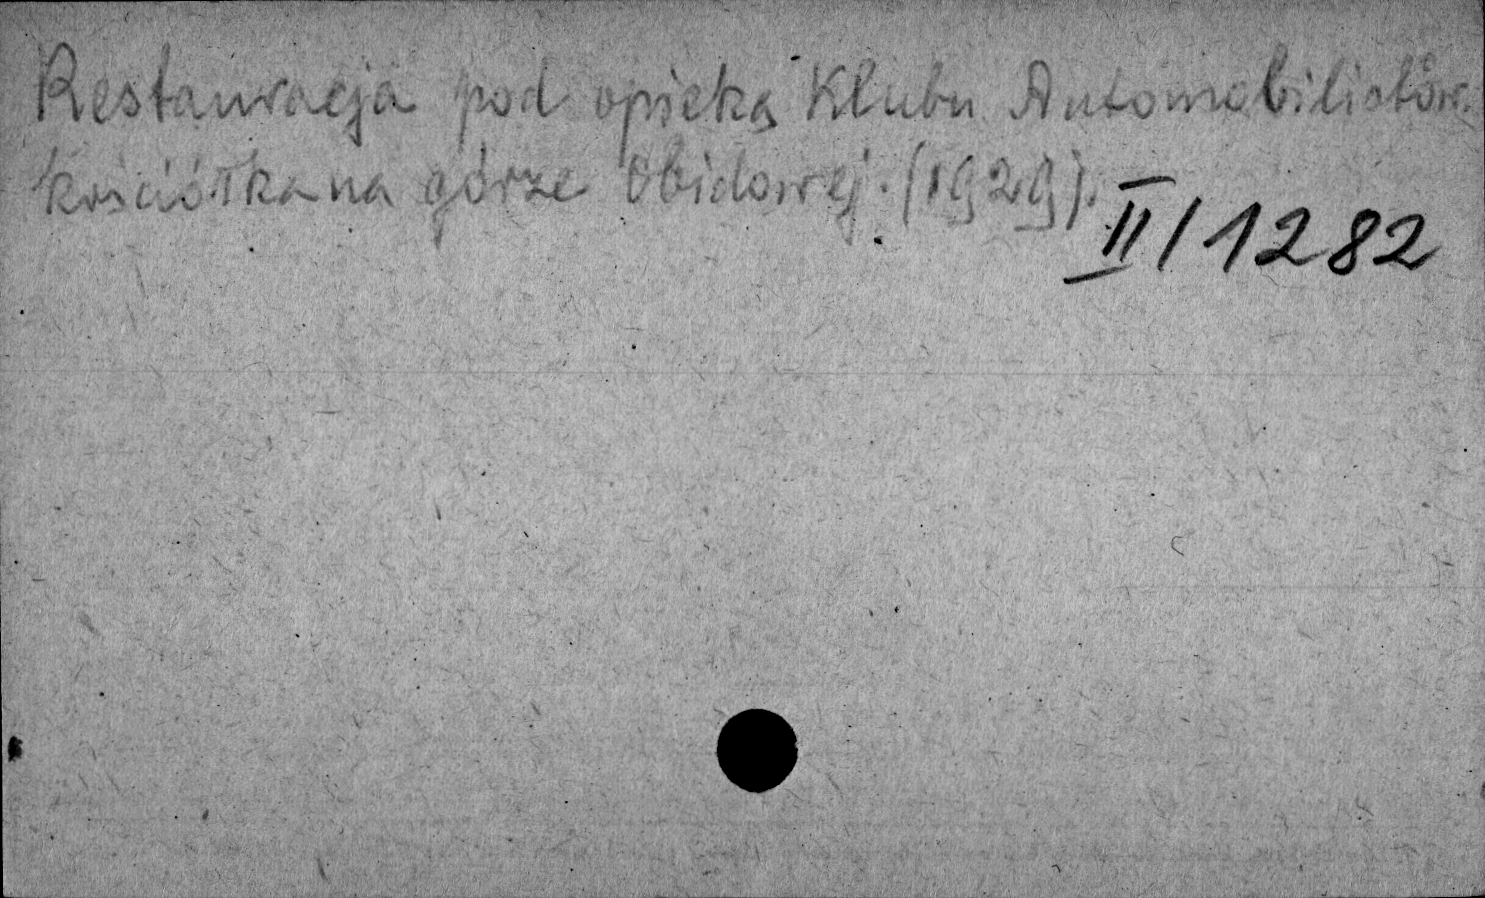 Restauracja pod opieką Klubu Automobilistów.
kościółka na górze Obidowej. (1929).
II/1282